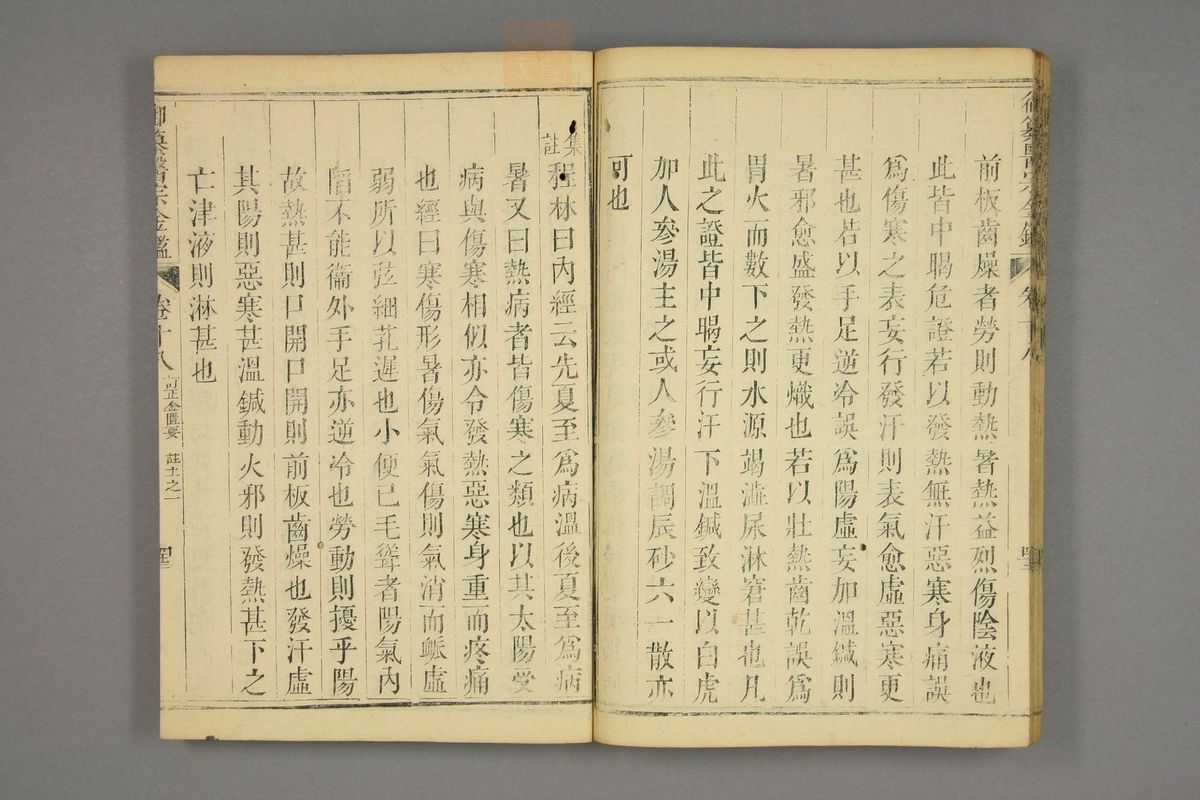 御纂醫宗金鑑 卷十八
前板齒燥者勞則動熱暑熱益烈傷陰液也
此皆中暍危證若以發熱無汗惡寒身痛誤
爲傷寒之表妄行發汗則表氣愈虛惡寒更
甚也若以手足逆冷誤爲陽虛妄加溫鍼則
暑邪愈盛發熱更熾也若以壯熱齒乾誤爲
胃火而數下之則水源竭澁尿淋窘甚也凡
此之證皆中暍妄行汗下溫鍼致變以白虎
加人參湯主之或人參湯調辰砂六一散亦
可也
集註程林曰內經云先夏至爲病溫後夏至爲病
暑又曰熱病者皆傷寒之類也以其太陽受
病與傷寒相似亦令發熱惡寒身重而疼痛
也經曰寒傷形暑傷氣氣傷則氣消而脈虛
弱所以弦細芤遲也小便已毛聳者陽氣內
陷不能衞外手足亦逆冷也勞動則擾乎陽
故熱甚則口開口開則前板齒燥也發汗虛
其陽則惡寒甚溫鍼動火邪則發熱甚下之
亡津液則淋甚也
御纂醫宗金鑑 卷十八 訂正金匱要 註十之一